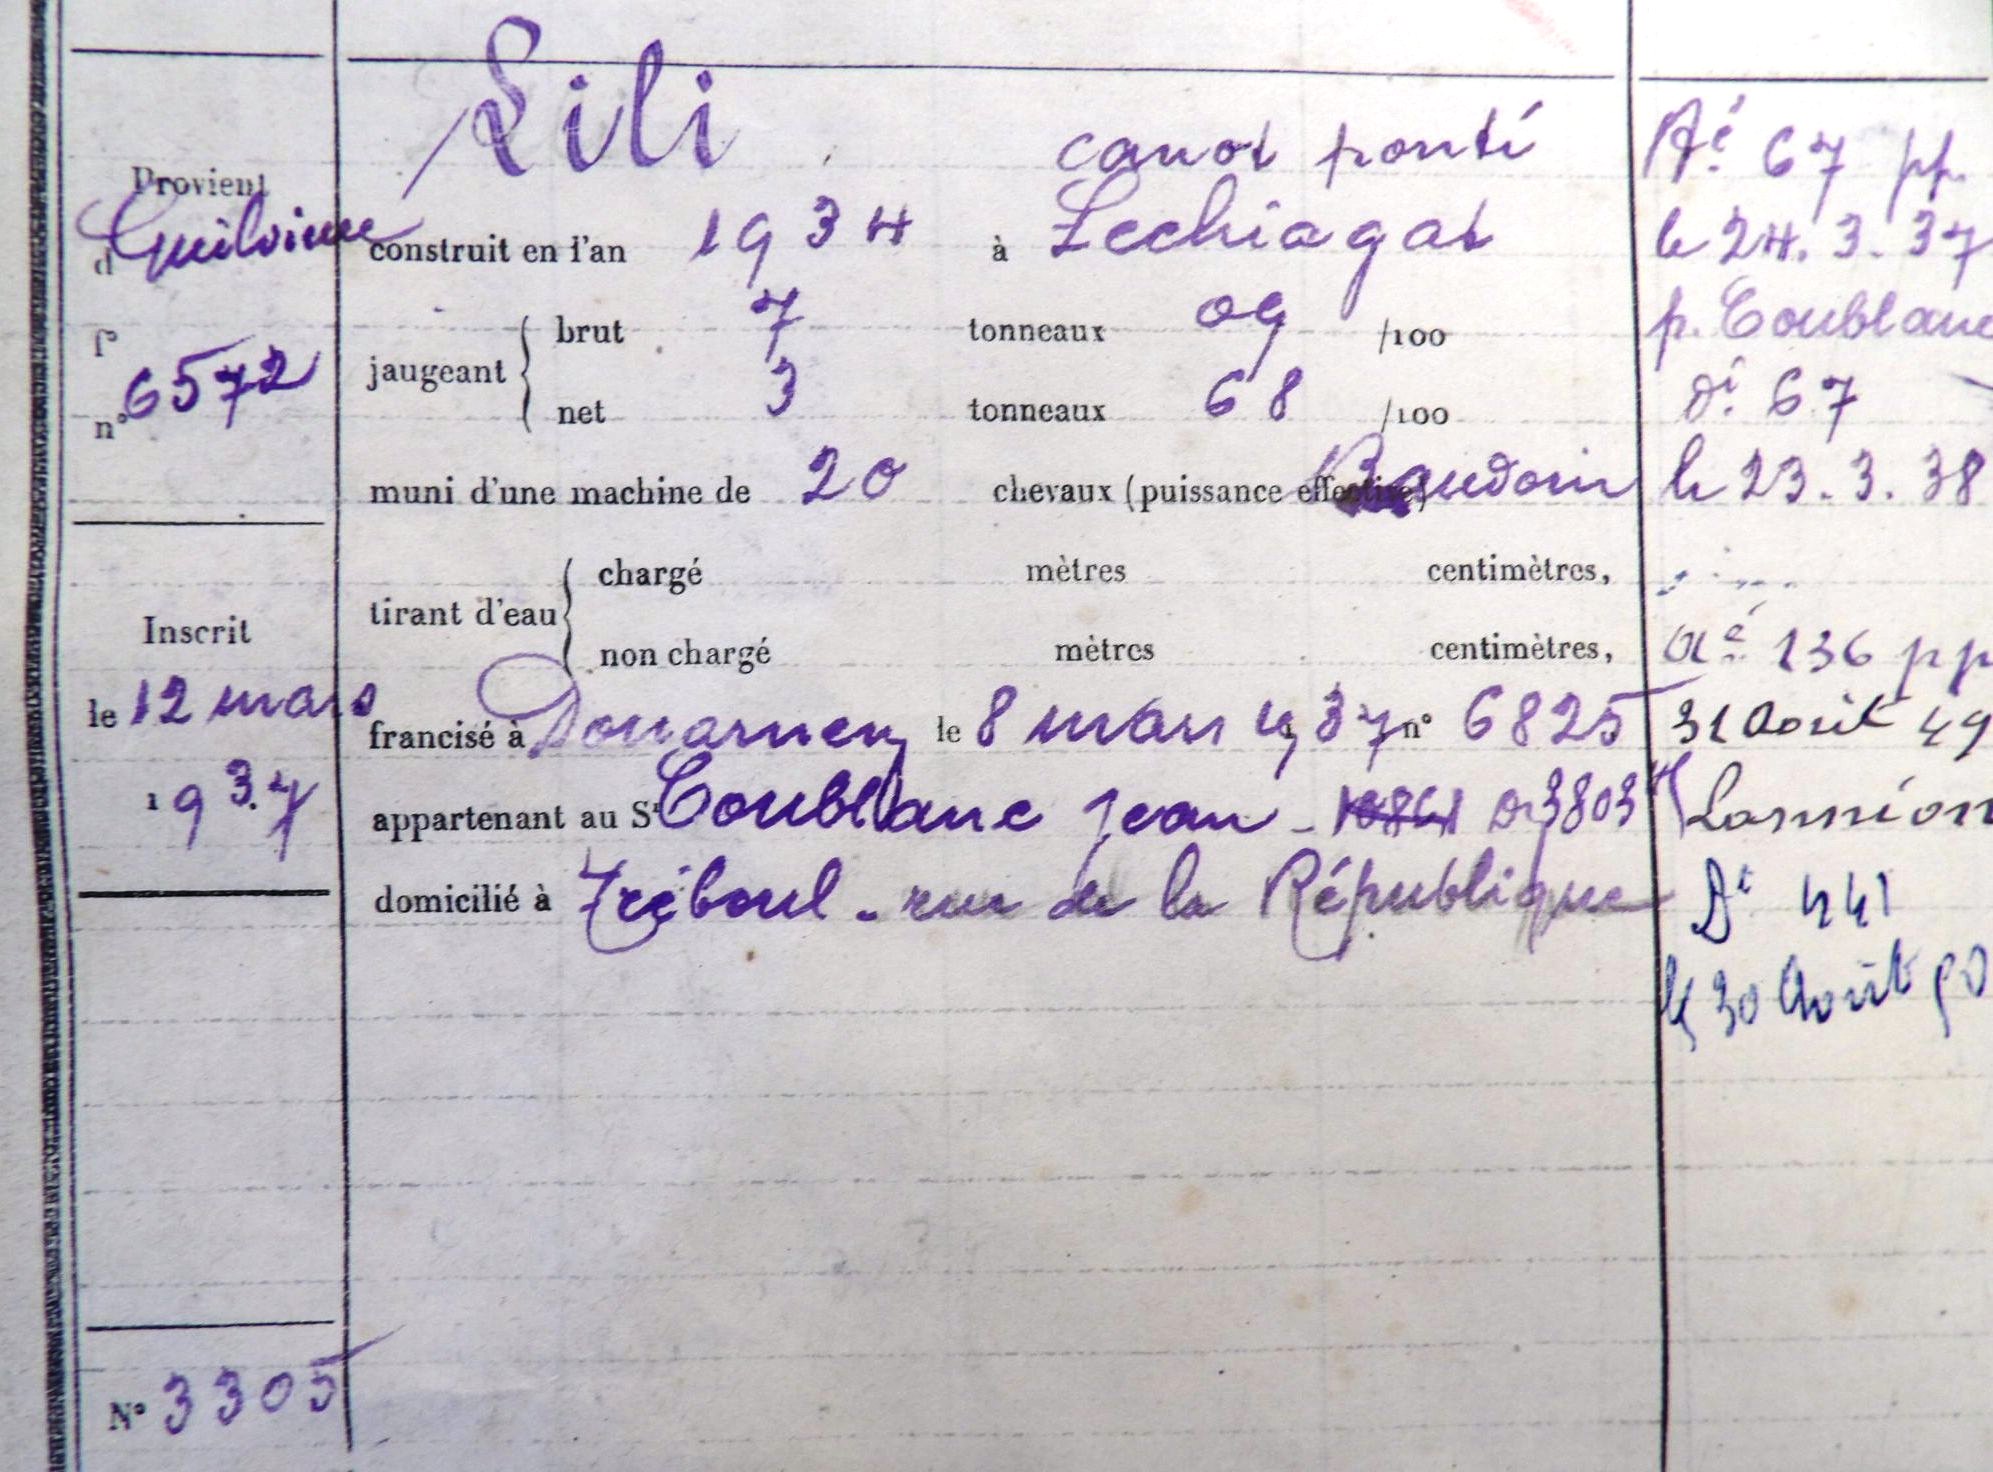 Lili
canot ponté
Provient
d Guilvinec
f°
n° 6572
Inscrit
le 12 mars
1937
N° 3305
construit en l'an 1934 à Lechiagat
jaugeant { brut 7 tonneaux 09 /100
net 3 tonneaux 68 /100
muni d'une machine de 20 chevaux (puissance effective) Baudoin
tirant d'eau { chargé mètres centimètres,
non chargé mètres centimètres,
francisé à Douarnenez le 8 mars 1937 n° 6825
appartenant au Sr Coublanc Jean - 3803
domicilié à Tréboul - rue de la République
Aé 67 pp.
le 24.3.37
p. Coublanc
Dé 67
le 23.3.38
aé 136 pp
31 Août 49
Lannion
Dé 441
le 30 Août 50